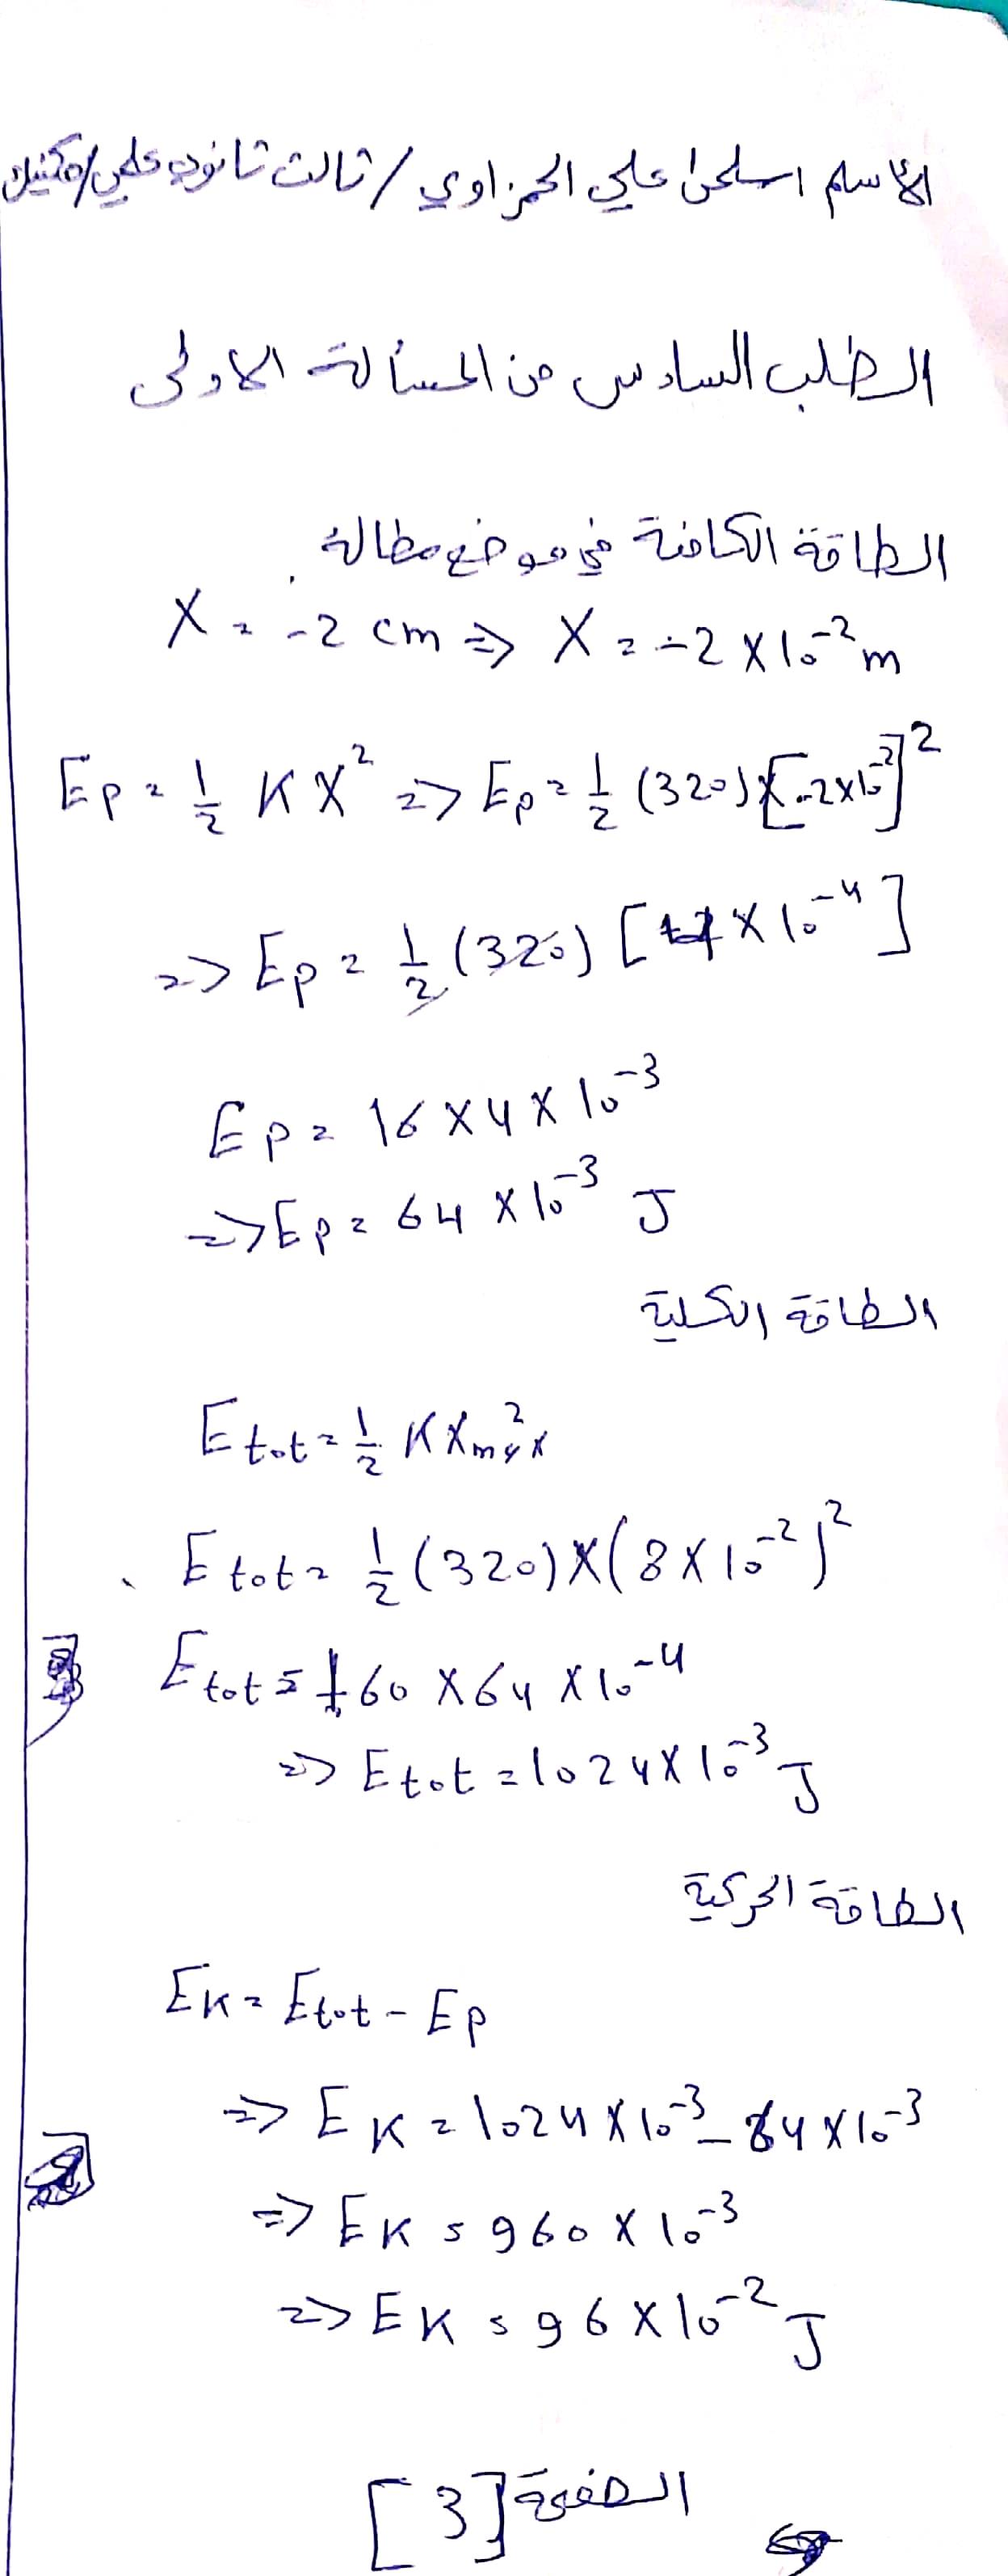 الاسم اسلحن علي الحمزاوي / ثالث ثانوي علمي /
الطلب السادس من المسألة الاولى
الطاقة الكامنة في موضع مطاله
X = -2 cm => X = -2 X 10^-2 m
Ep = 1/2 K X^2 => Ep = 1/2 (320) X [-2x10^-2]^2
=> Ep = 1/2 (320) [+4 X 10^-4]
Ep = 16 X 4 X 10^-3
=> Ep = 64 X 10^-3 J
الطاقة الكلية
Etot = 1/2 K Xmax^2
Etot = 1/2 (320) X (8 X 10^-2)^2
Etot = 160 X 64 X 10^-4
=> Etot = 1024 X 10^-3 J
الطاقة الحركية
EK = Etot - Ep
=> EK = 1024 X 10^-3 - 64 X 10^-3
=> EK = 960 X 10^-3
=> EK = 96 X 10^-2 J
الصفحة [3]